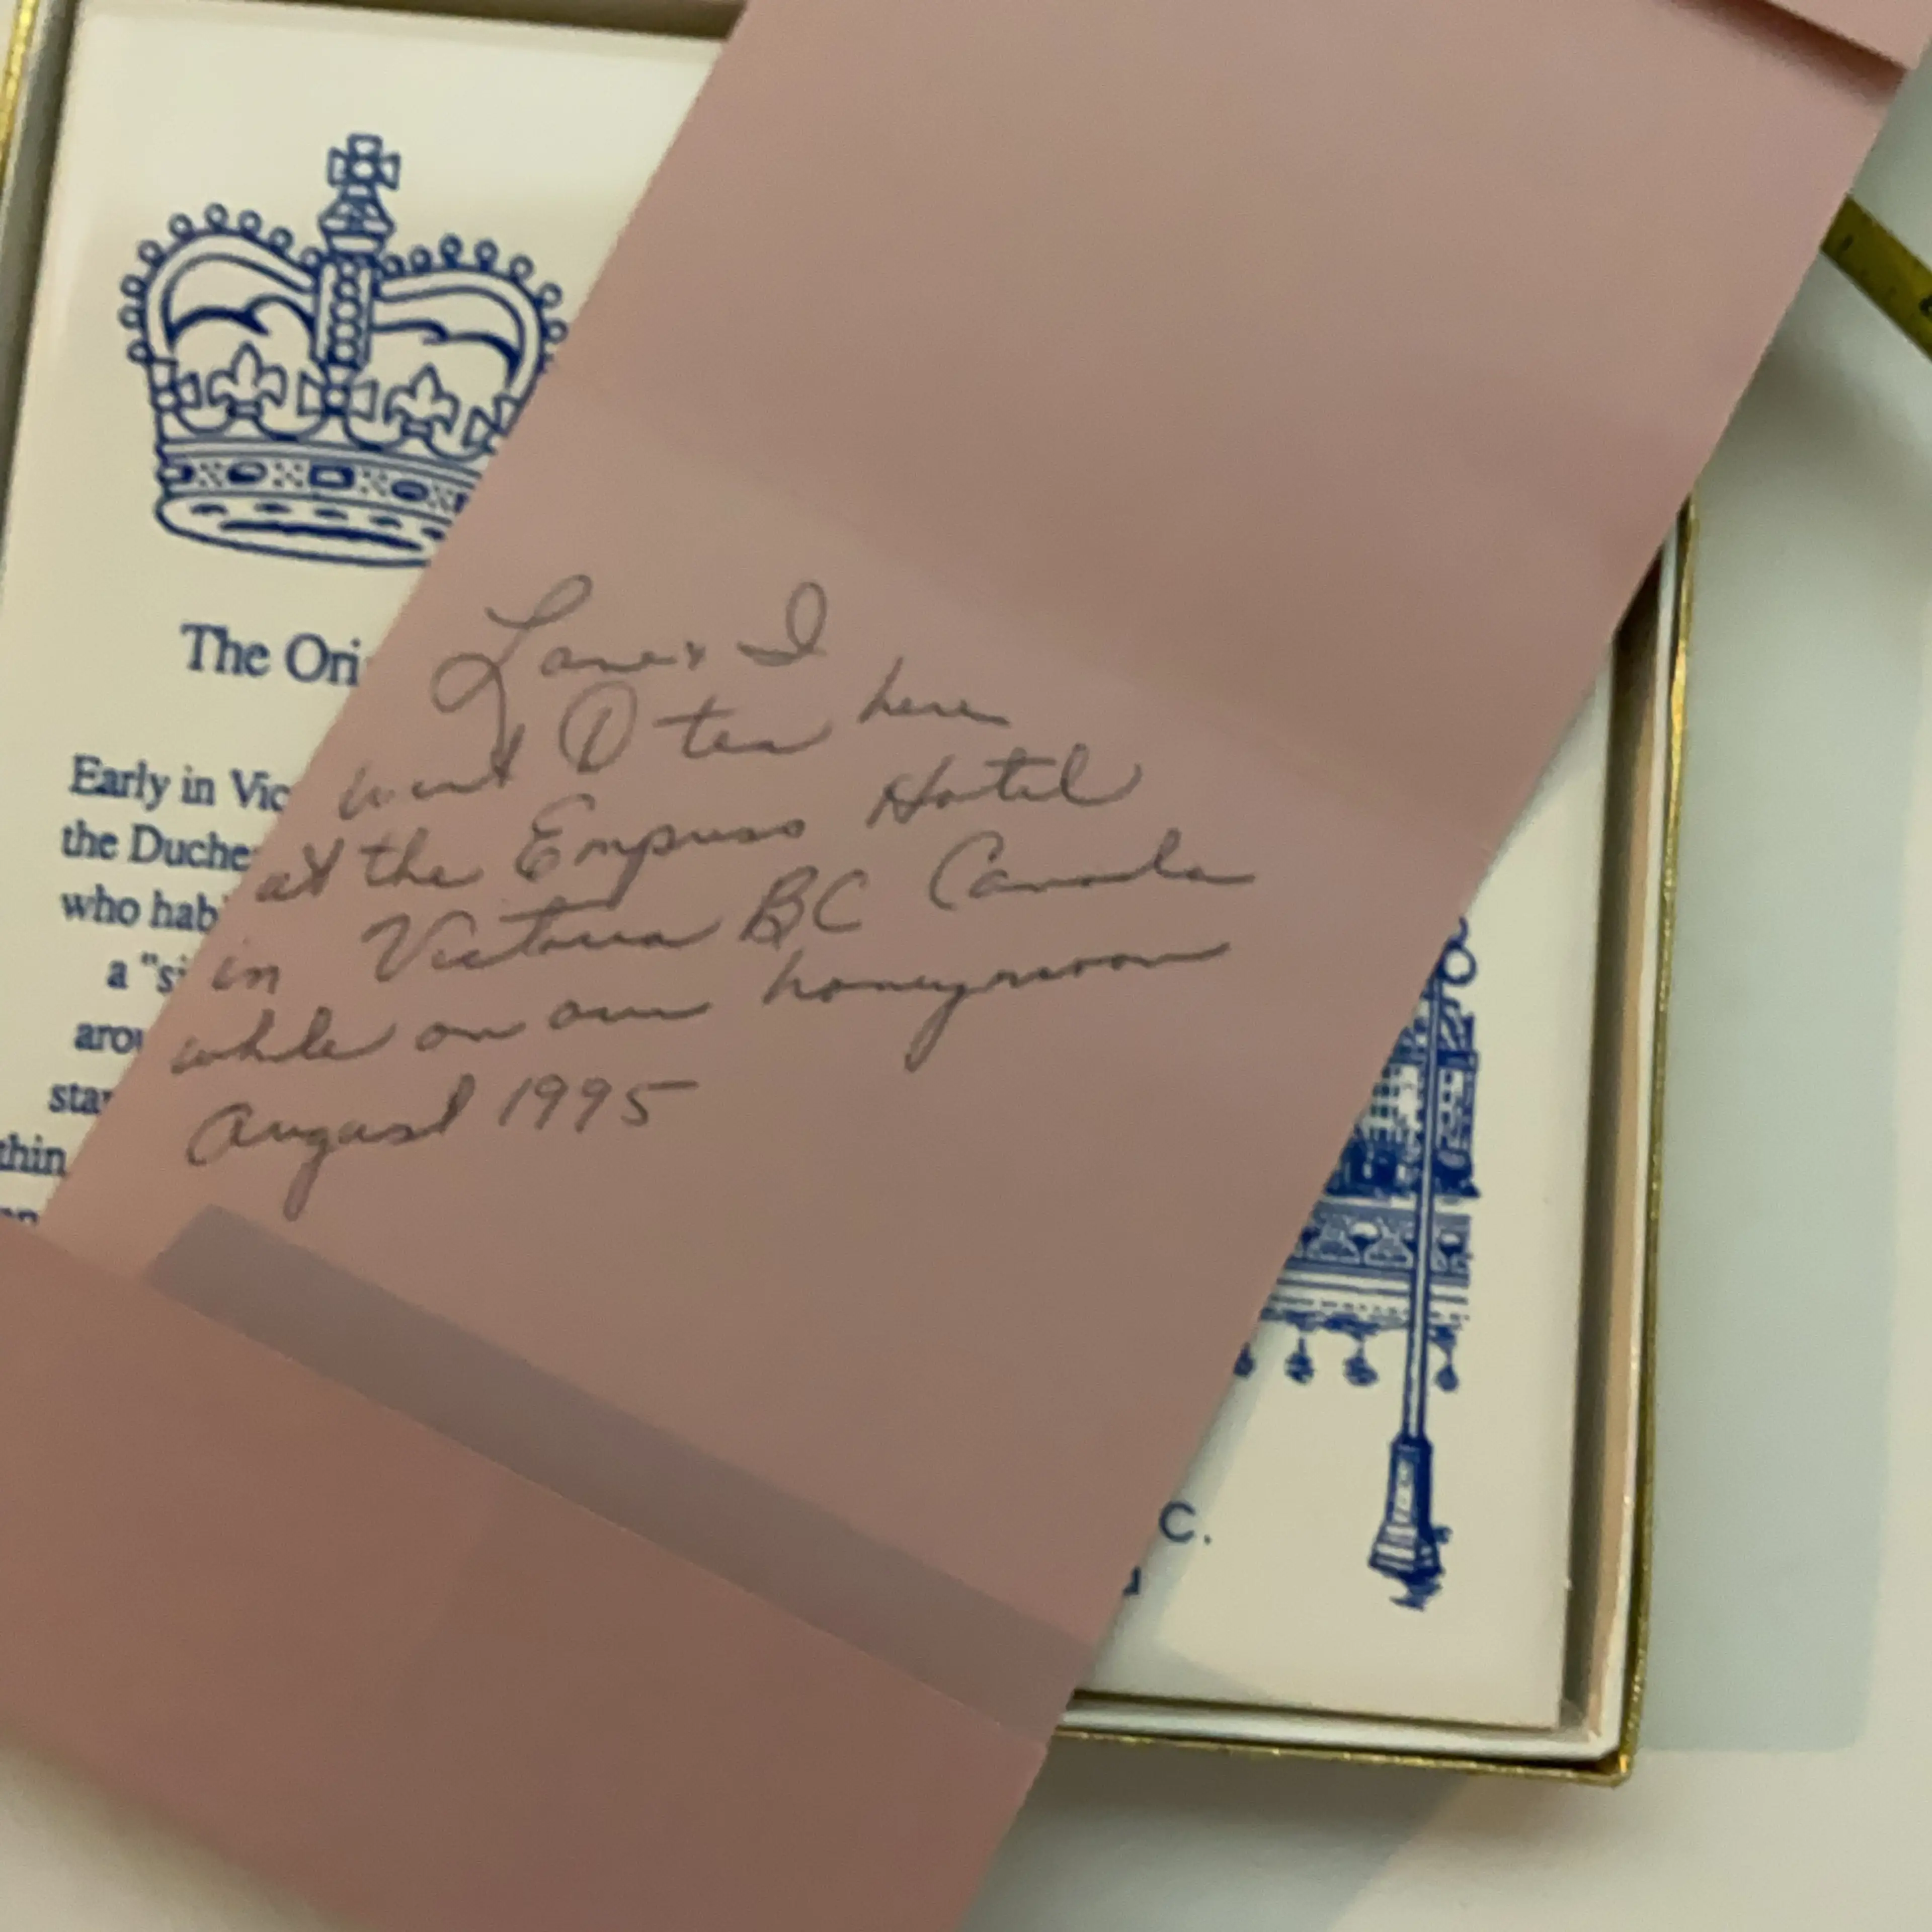 The Ori
Early in Vic
the Duche
who hab
a "si
arou
star
thin
Lane & I
went to tea here
at the Empress Hotel
in Victoria BC Canada
while on our honeymoon
August 1995
C.